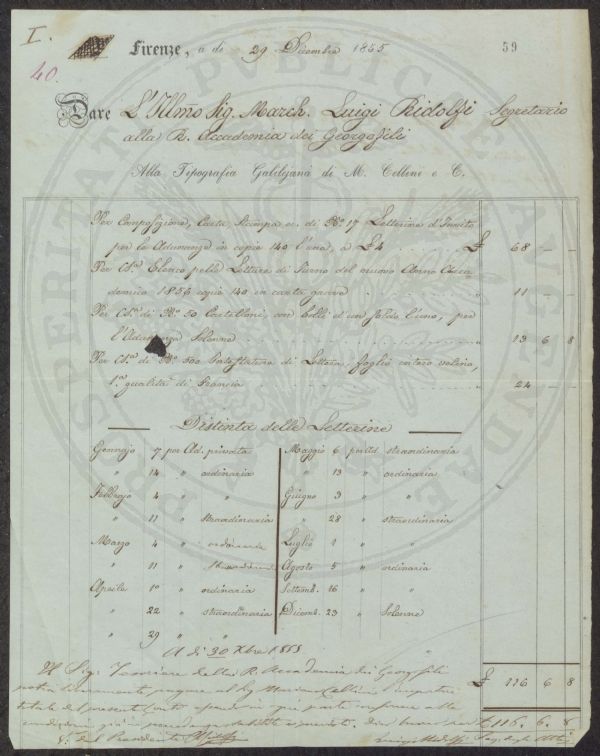 I.
40.
Firenze, a dì 29 Dicembre 1855
59
Dare L'Illmo Sig. March. Luigi Ridolfi Segretario
alla R. Accademia dei Georgofili
Alla Tipografia Galilejana di M. Cellini e C.
Per Composizione, Carta, Stampa ec. di No. 17 Letterine d'Invito
per le Adunanze in copie 140 l'una, a £ 4 £ 68 - -
Per Cs.a Elenco pelle Letture di Turno del nuovo Anno Acca-
demico 1856 copie 140 in carta grave " 11 - -
Per Cs.a di No. 50 Cartelloni, con bolli d'un soldo l'uno, per
l'Adunanza Solenne " 13 6 8
Per Cs.a di No. 500 Intestatura di Lettera, foglio intero velino,
1.a qualità di Francia " 24 -
Distinta delle Letterine
Gennajo 7 per Ad. privata
" 14 " ordinaria
Febbrajo 4 " "
" 11 " straordinaria
Marzo 4 " ordinaria
" 11 " straordinaria
Aprile 1o " ordinaria
" 22 " straordinaria
" 29 " "
Maggio 6 per Ad. straordinaria
" 13 " ordinaria
Giugno 3 " "
" 28 " straordinaria
Luglio 1 " "
Agosto 5 " ordinaria
Settemb. 16 " "
Dicemb. 23 " Solenne
A dì 30 Xbre 1855
£ 116 6 8
Il Sig. Tesoriere della R. Accademia dei Georgofili
potrà pagare al Sig. Mariano Cellini
totale del presente Conto
£ 116. 6. 8
Il Presidente
PROSPERITATI PVBLICAE AVGENDAE